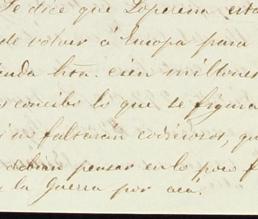 Se dice que Loperena esta
de volver á Europa para
cien millones
concibo lo que se figura
faltarian codiciosos, qu
debian pensar en lo poco
la Guerra por aca.